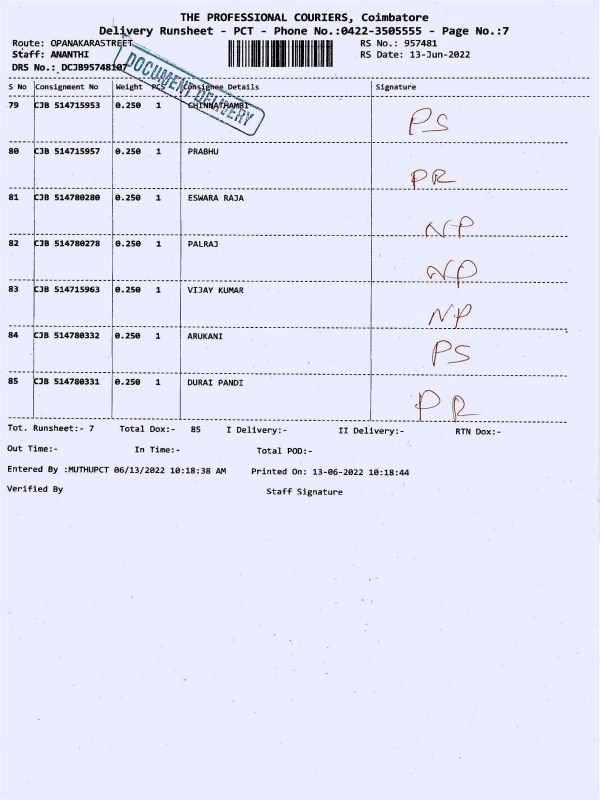 THE PROFESSIONAL COURIERS, Coimbatore
Delivery Runsheet - PCT - Phone No.:0422-3505555 - Page No.:7
Route: OPANAKARASTREET RS No.: 957481
Staff: ANANTHI RS Date: 13-Jun-2022
DRS No.: DCJB95748107
DOCUMENT DELIVERY
S No Consignment No Weight PCS Consignee Details Signature
79 CJB 514715953 0.250 1 CHINNATHAMBI PS
80 CJB 514715957 0.250 1 PRABHU PR
81 CJB 514780280 0.250 1 ESWARA RAJA NP
82 CJB 514780278 0.250 1 PALRAJ NP
83 CJB 514715963 0.250 1 VIJAY KUMAR NP
84 CJB 514780332 0.250 1 ARUKANI PS
85 CJB 514780331 0.250 1 DURAI PANDI PR
Tot. Runsheet:- 7 Total Dox:- 85 I Delivery:- II Delivery:- RTN Dox:-
Out Time:- In Time:- Total POD:-
Entered By :MUTHUPCT 06/13/2022 10:18:38 AM Printed On: 13-06-2022 10:18:44
Verified By Staff Signature